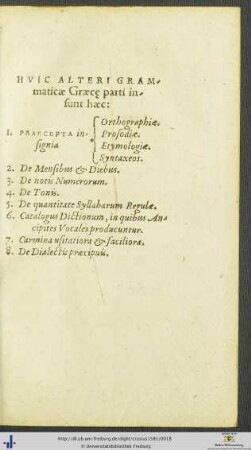 HVIC ALTERI GRAM-
maticæ Græcę parti in-
sunt hæc:
Orthographiæ.
1. PRAECEPTA in-
signia
Prosodiæ.
Etymologiæ.
Syntaxeos.
2. De Mensibus & Diebus.
3. De notis Numerorum.
4. De Tonis.
5. De quantitate Syllabarum Regulæ.
6. Catalogus Dictionum, in quibus An-
cipites Vocales producuntur.
7. Carmina usitatiora & faciliora.
8. De Dialectis præcipuis.
http://dl.ub.uni-freiburg.de/diglit/crusius1585/0018
© Universitätsbibliothek Freiburg